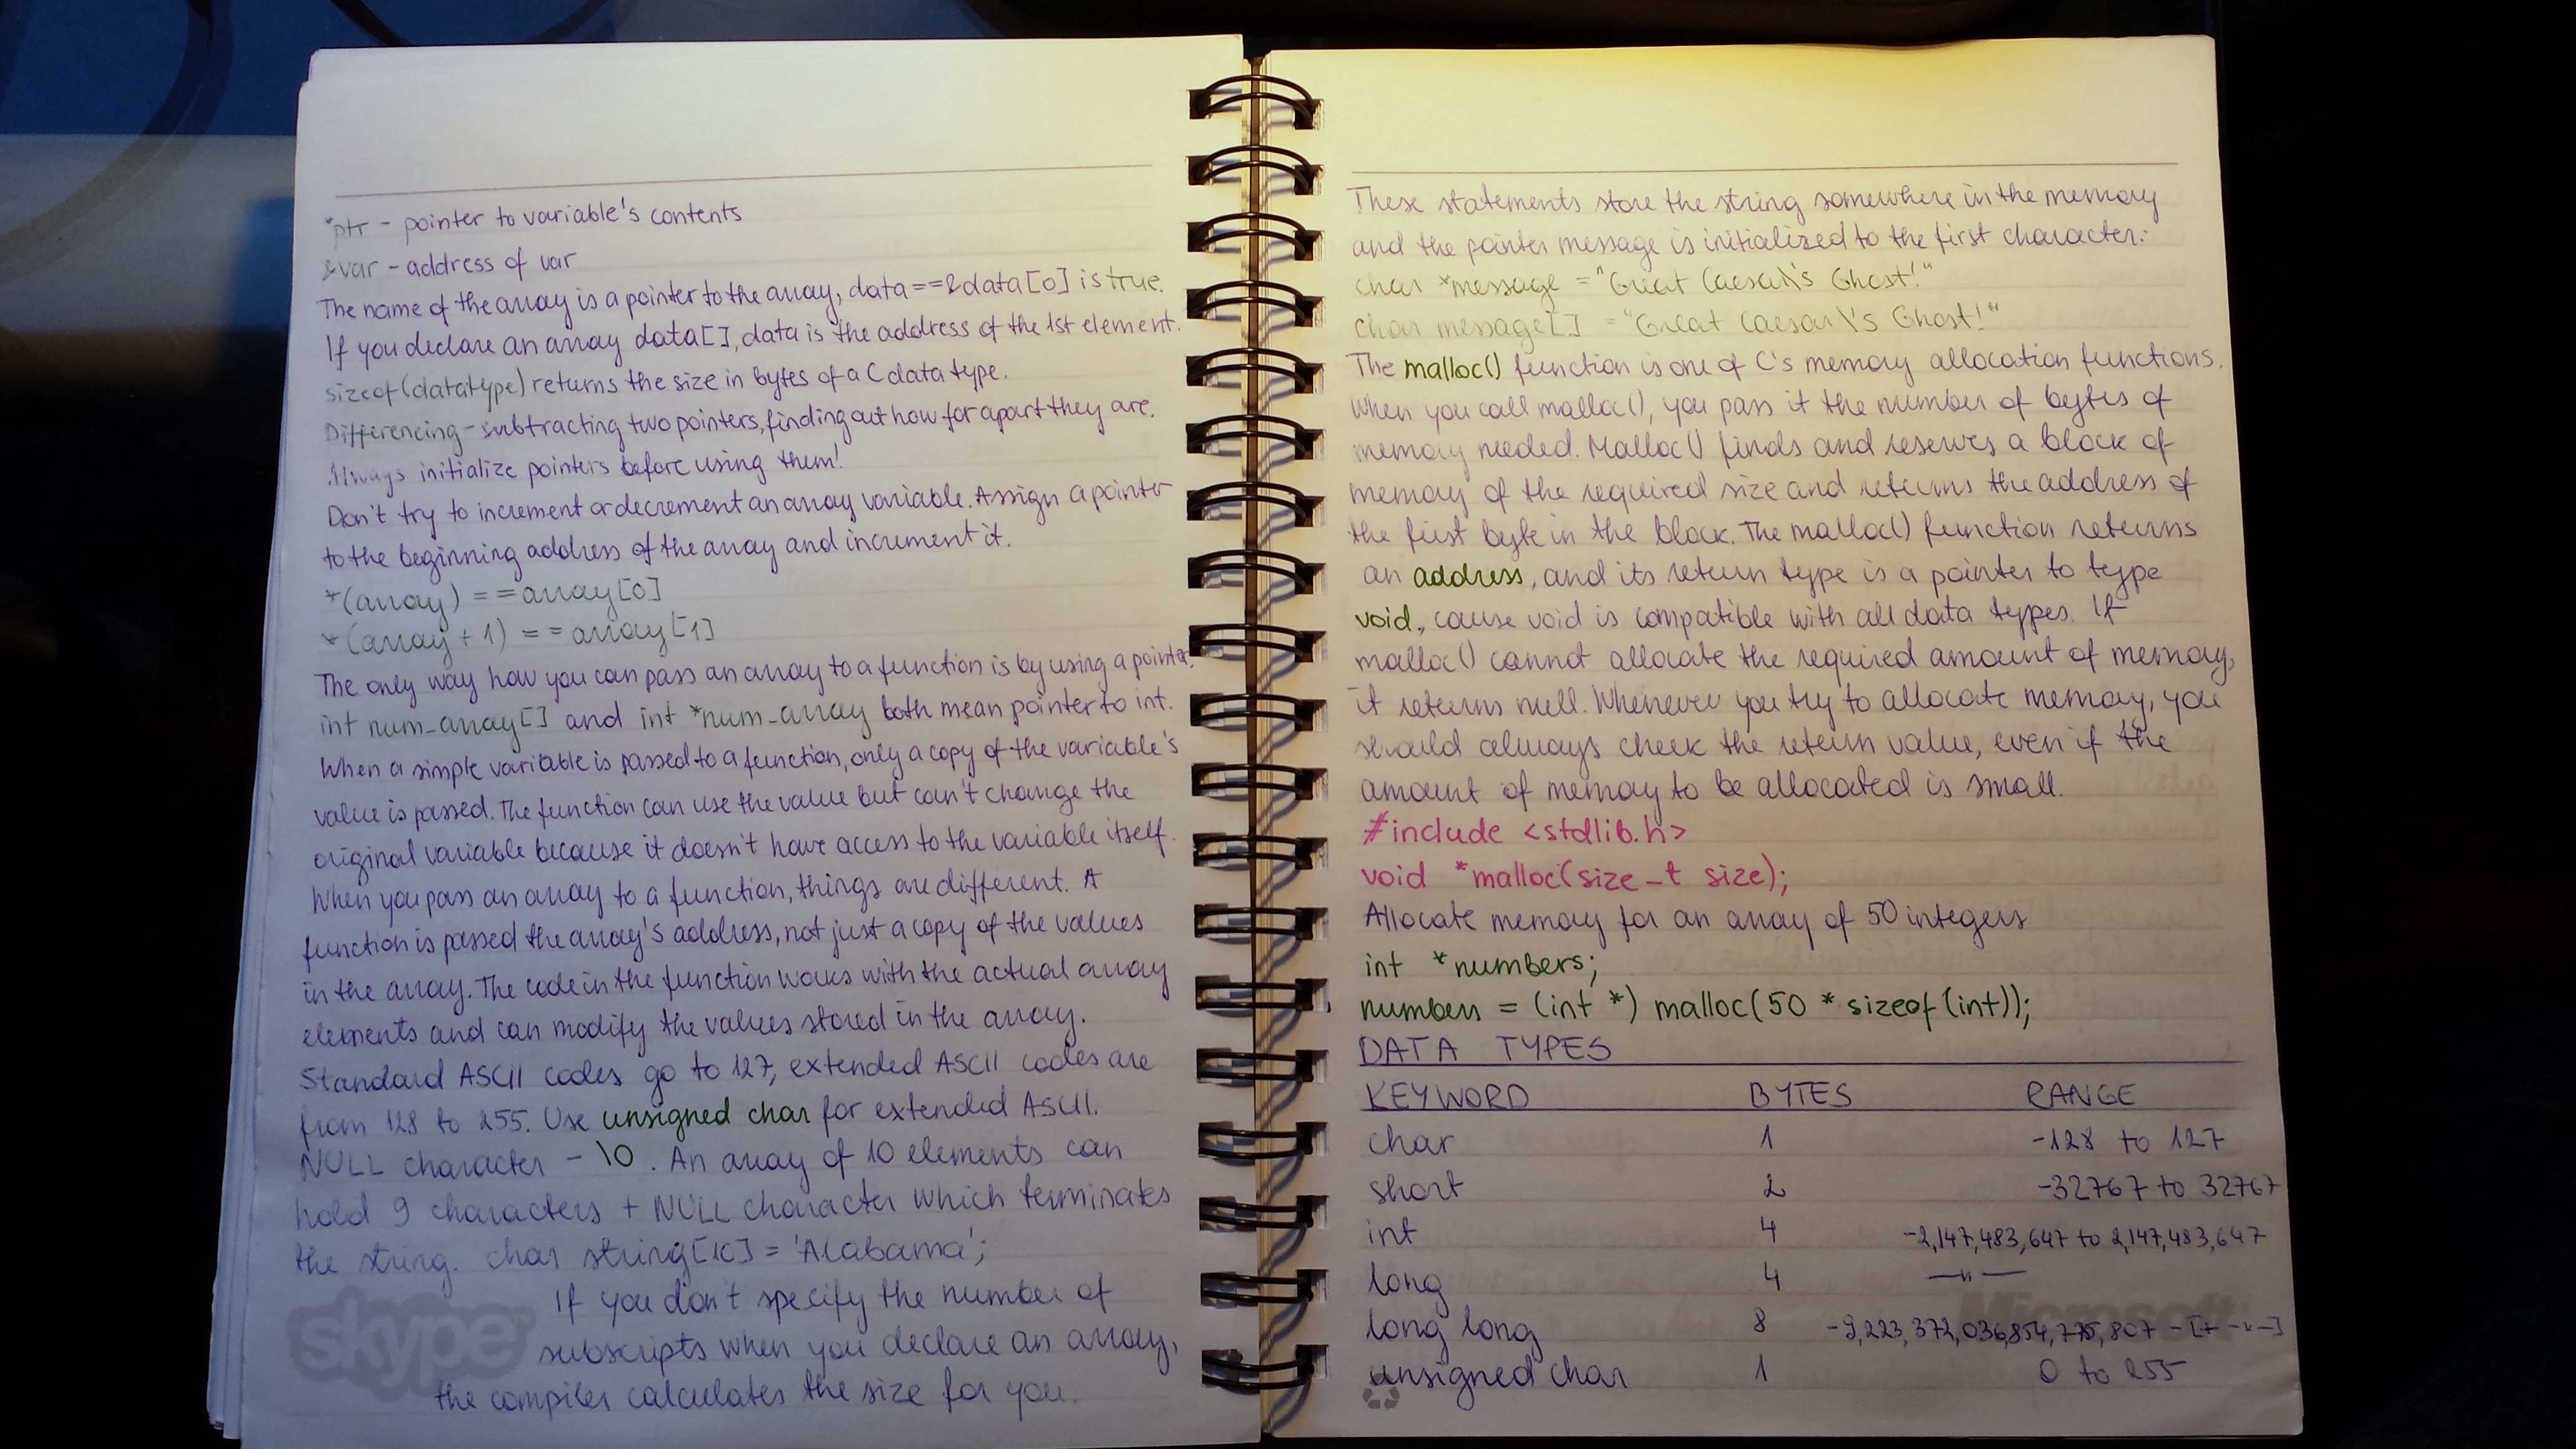 *ptr - pointer to variable's contents
&var - address of var
The name of the array is a pointer to the array, data==&data[0] is true.
If you declare an array data[], data is the address of the 1st element.
sizeof(datatype) returns the size in bytes of a C data type.
Differencing - subtracting two pointers, finding out how far apart they are.
Always initialize pointers before using them!
Don't try to increment or decrement an array variable. Assign a pointer
to the beginning address of the array and increment it.
*(array) == array[0]
*(array + 1) == array[1]
The only way how you can pass an array to a function is by using a pointer.
int num_array[] and int *num_array both mean pointer to int.
When a simple variable is passed to a function, only a copy of the variable's
value is passed. The function can use the value but can't change the
original variable because it doesn't have access to the variable itself.
When you pass an array to a function, things are different. A
function is passed the array's address, not just a copy of the values
in the array. The code in the function works with the actual array
elements and can modify the values stored in the array.
Standard ASCII codes go to 127, extended ASCII codes are
from 128 to 255. Use unsigned char for extended ASCII.
NULL character - \0. An array of 10 elements can
hold 9 characters + NULL character which terminates
the string. char string[10] = 'Alabama';
If you don't specify the number of
subscripts when you declare an array,
the compiler calculates the size for you.
skype™
These statements store the string somewhere in the memory
and the pointer message is initialized to the first character:
char *message = "Great Caesar\'s Ghost!"
char message[] = "Great Caesar\'s Ghost!"
The malloc() function is one of C's memory allocation functions.
When you call malloc(), you pass it the number of bytes of
memory needed. Malloc() finds and reserves a block of
memory of the required size and returns the address of
the first byte in the block. The malloc() function returns
an address, and its return type is a pointer to type
void, cause void is compatible with all data types. If
malloc() cannot allocate the required amount of memory,
it returns null. Whenever you try to allocate memory, you
should always check the return value, even if the
amount of memory to be allocated is small.
#include <stdlib.h>
void *malloc(size_t size);
Allocate memory for an array of 50 integers
int *numbers;
numbers = (int *) malloc(50 * sizeof(int));
DATA TYPES
KEYWORD BYTES RANGE
char 1 -128 to 127
short 2 -32767 to 32767
int 4 -2,147,483,647 to 2,147,483,647
long 4 —"—
long long 8 -9,223,372,036,854,775,807 - [+ -"-]
unsigned char 1 0 to 255
Microsoft